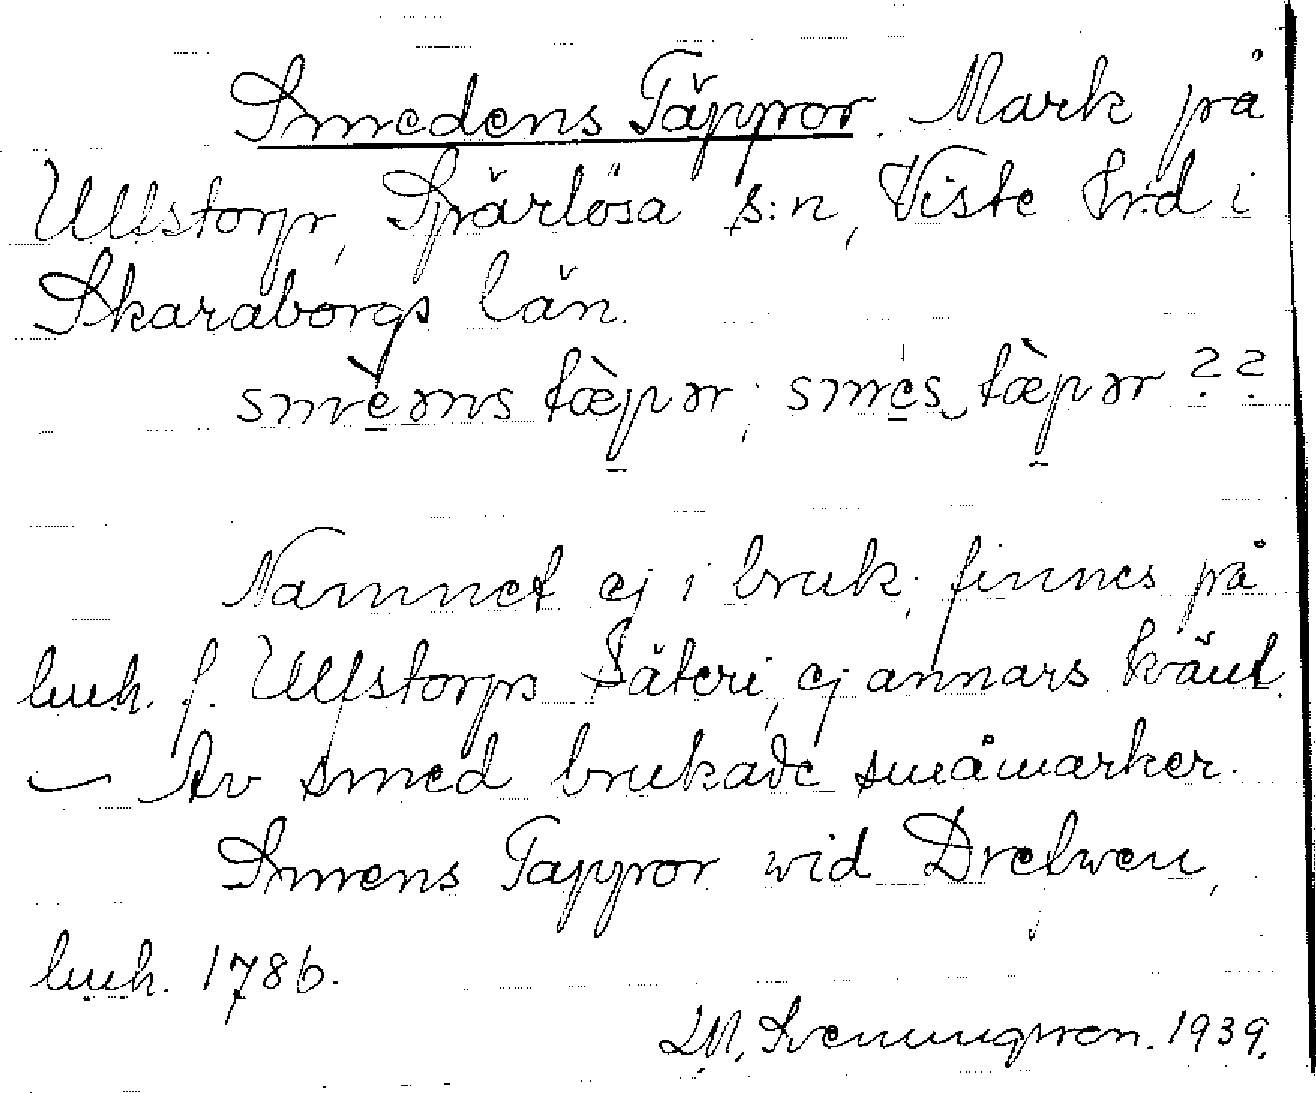 Smedens Täppor. Mark på
Ulfstorp, Spärlösa s:n, Viste hd i
Skaraborgs län.
smèəns tæ̀pər; smés tæ̀pər ??
Namnet ej i bruk; finnes på
luuh. f. Ulfstorps Säteri, ej annars känt.
— Av smed brukade småmarker.
Smens Tappor wid Drelwen,
luuh. 1786.
Svenungsson. 1939.